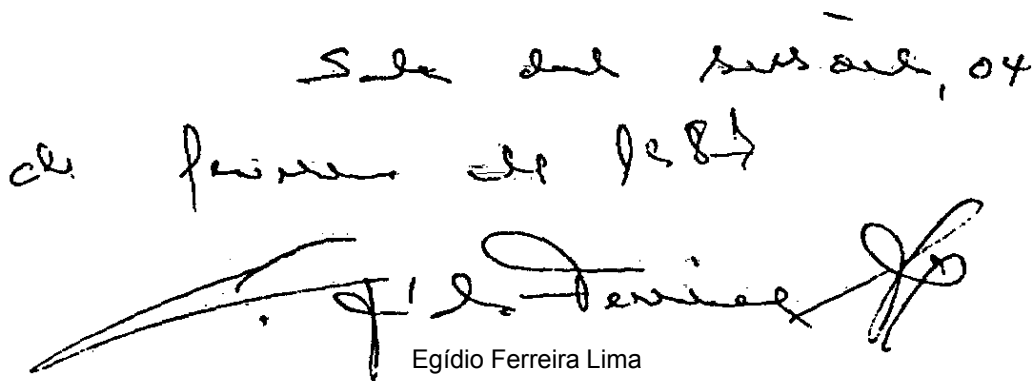 Sala das sessões, 04
de fevereiro de 1987
Egídio Ferreira
Egídio Ferreira Lima